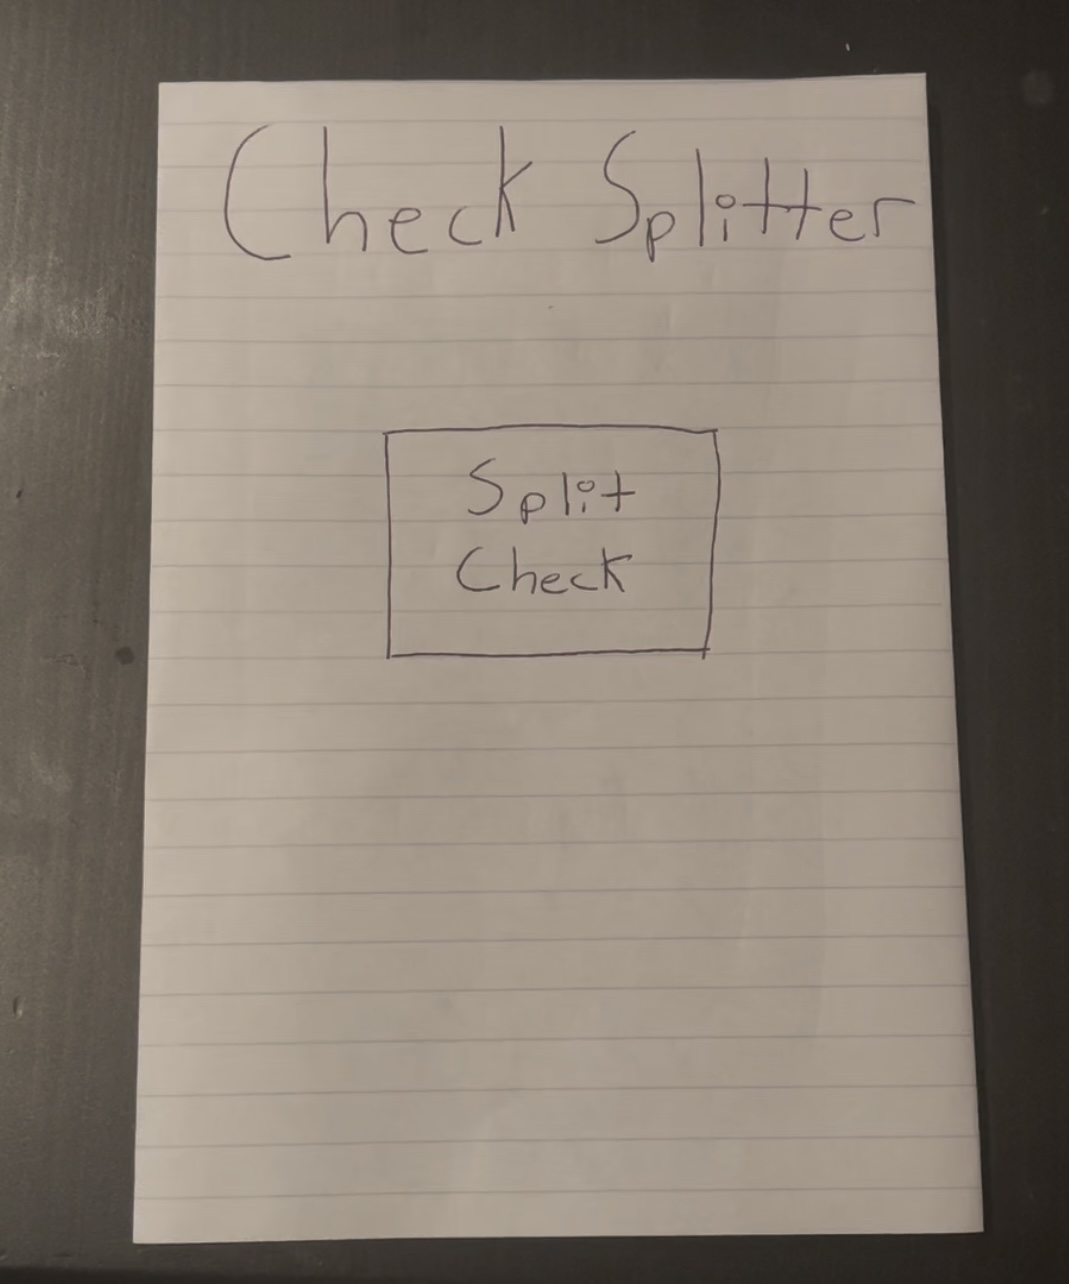 Check Splitter
Split
Check